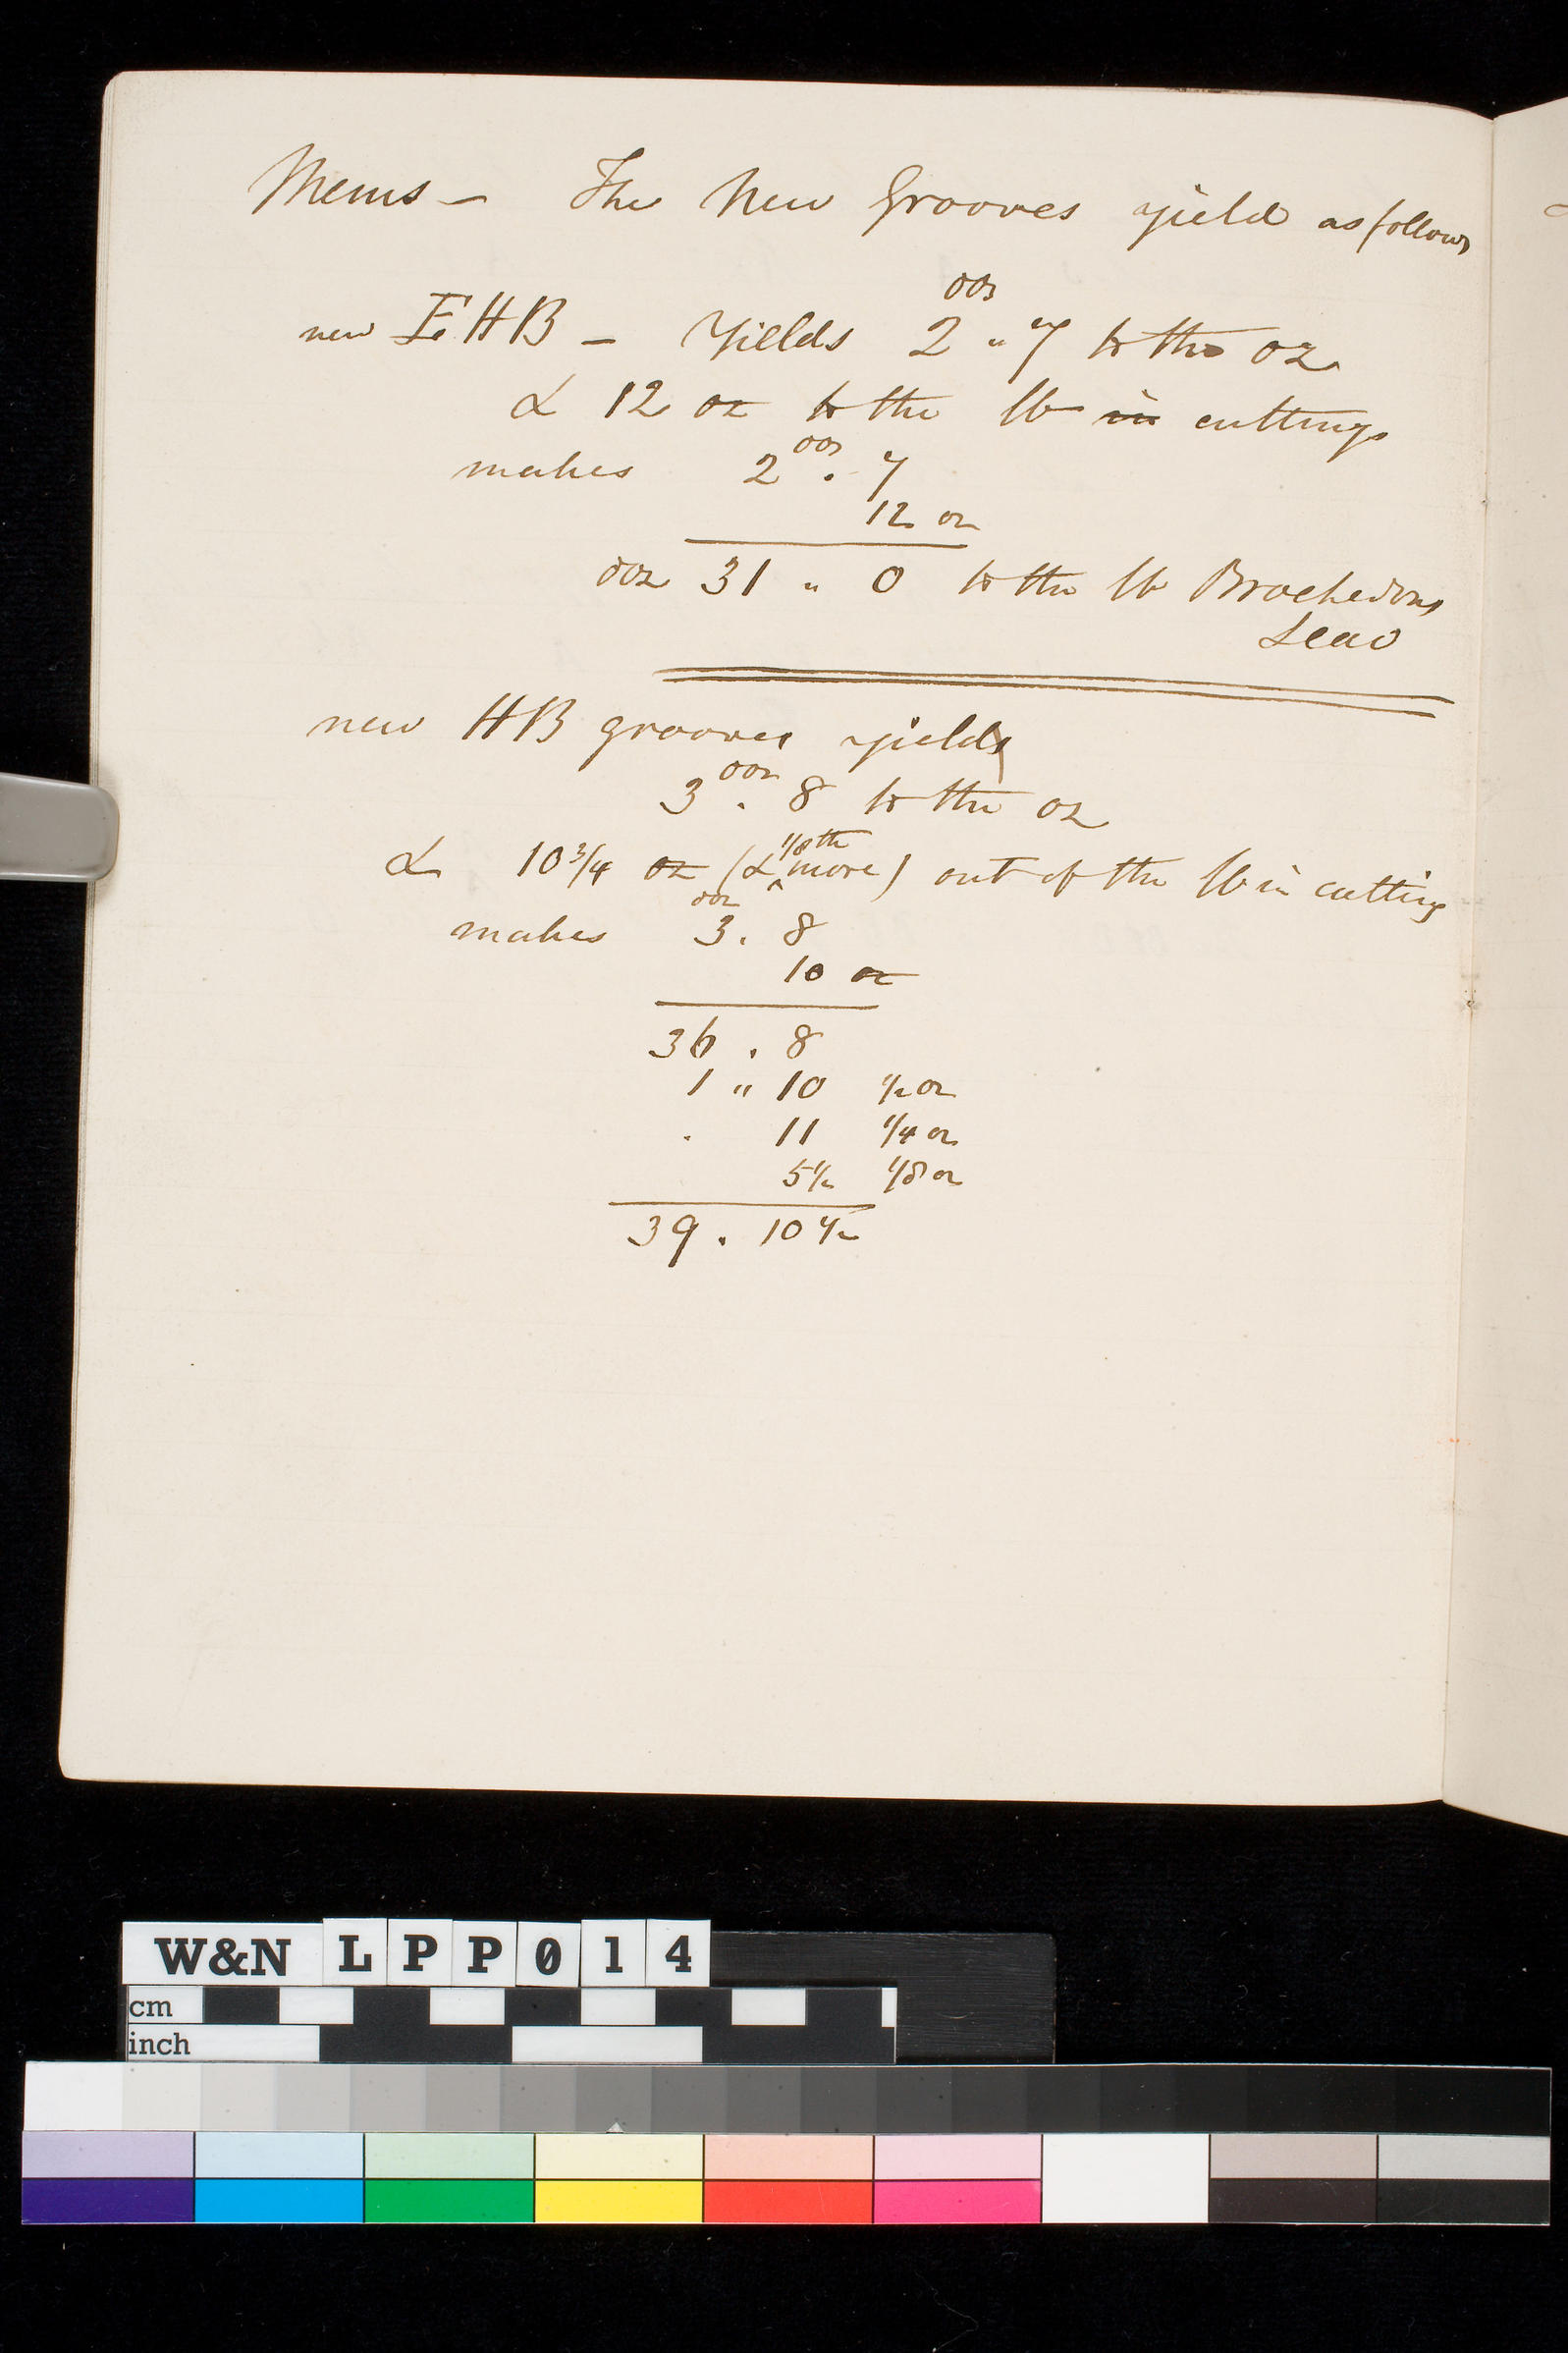 Mems – The New Grooves yield as follows
doz
new EHB – Yields 2 " 7 to the oz
& 12 oz to the lb in cuttings
doz
makes 2 . 7
12 oz
doz 31 " 0 to the lb Brockedons
Lead
new HB grooves yields
doz
3 . 8 to the oz
1/8th
& 10 3/4 oz (& ^ more) out of the lb in cutting
doz
makes 3 . 8
10 oz
36 . 8
1 " 10 1/2 oz
. 11 1/4 oz
5 1/2 1/8 oz
39 . 10 1/2
W&N LPP014
cm
inch